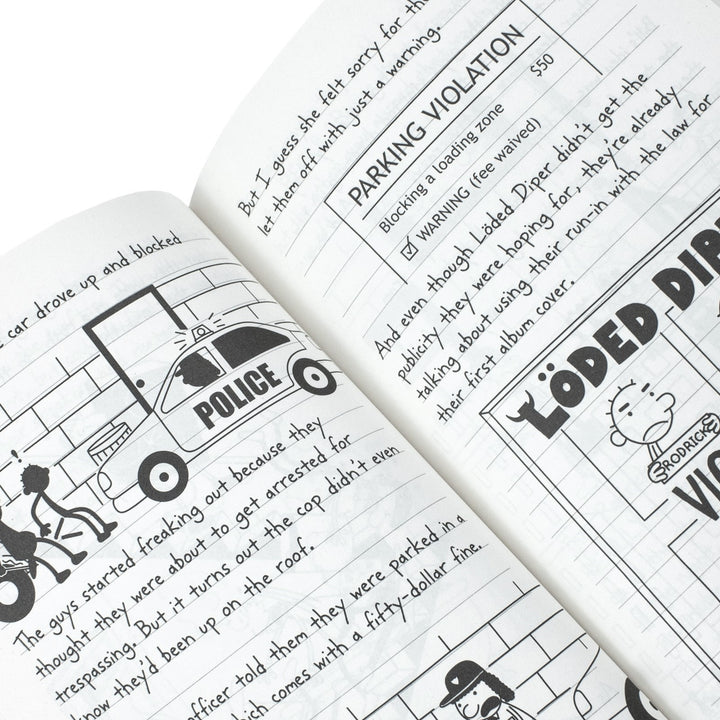 car drove up and blocked
POLICE
!
The guys started freaking out because they
thought they were about to get arrested for
trespassing. But it turns out the cop didn't even
know they'd been up on the roof.
officer told them they were parked in a
which comes with a fifty-dollar fine.
But I guess she felt sorry for the
let them off with just a warning.
PARKING VIOLATION
$50
Blocking a loading zone
☑ WARNING (fee waived)
And even though Löded Diper didn't get the
publicity they were hoping for, they're already
talking about using their run-in with the law for
their first album cover.
LÖDED DIPE
RODRICK
VIO